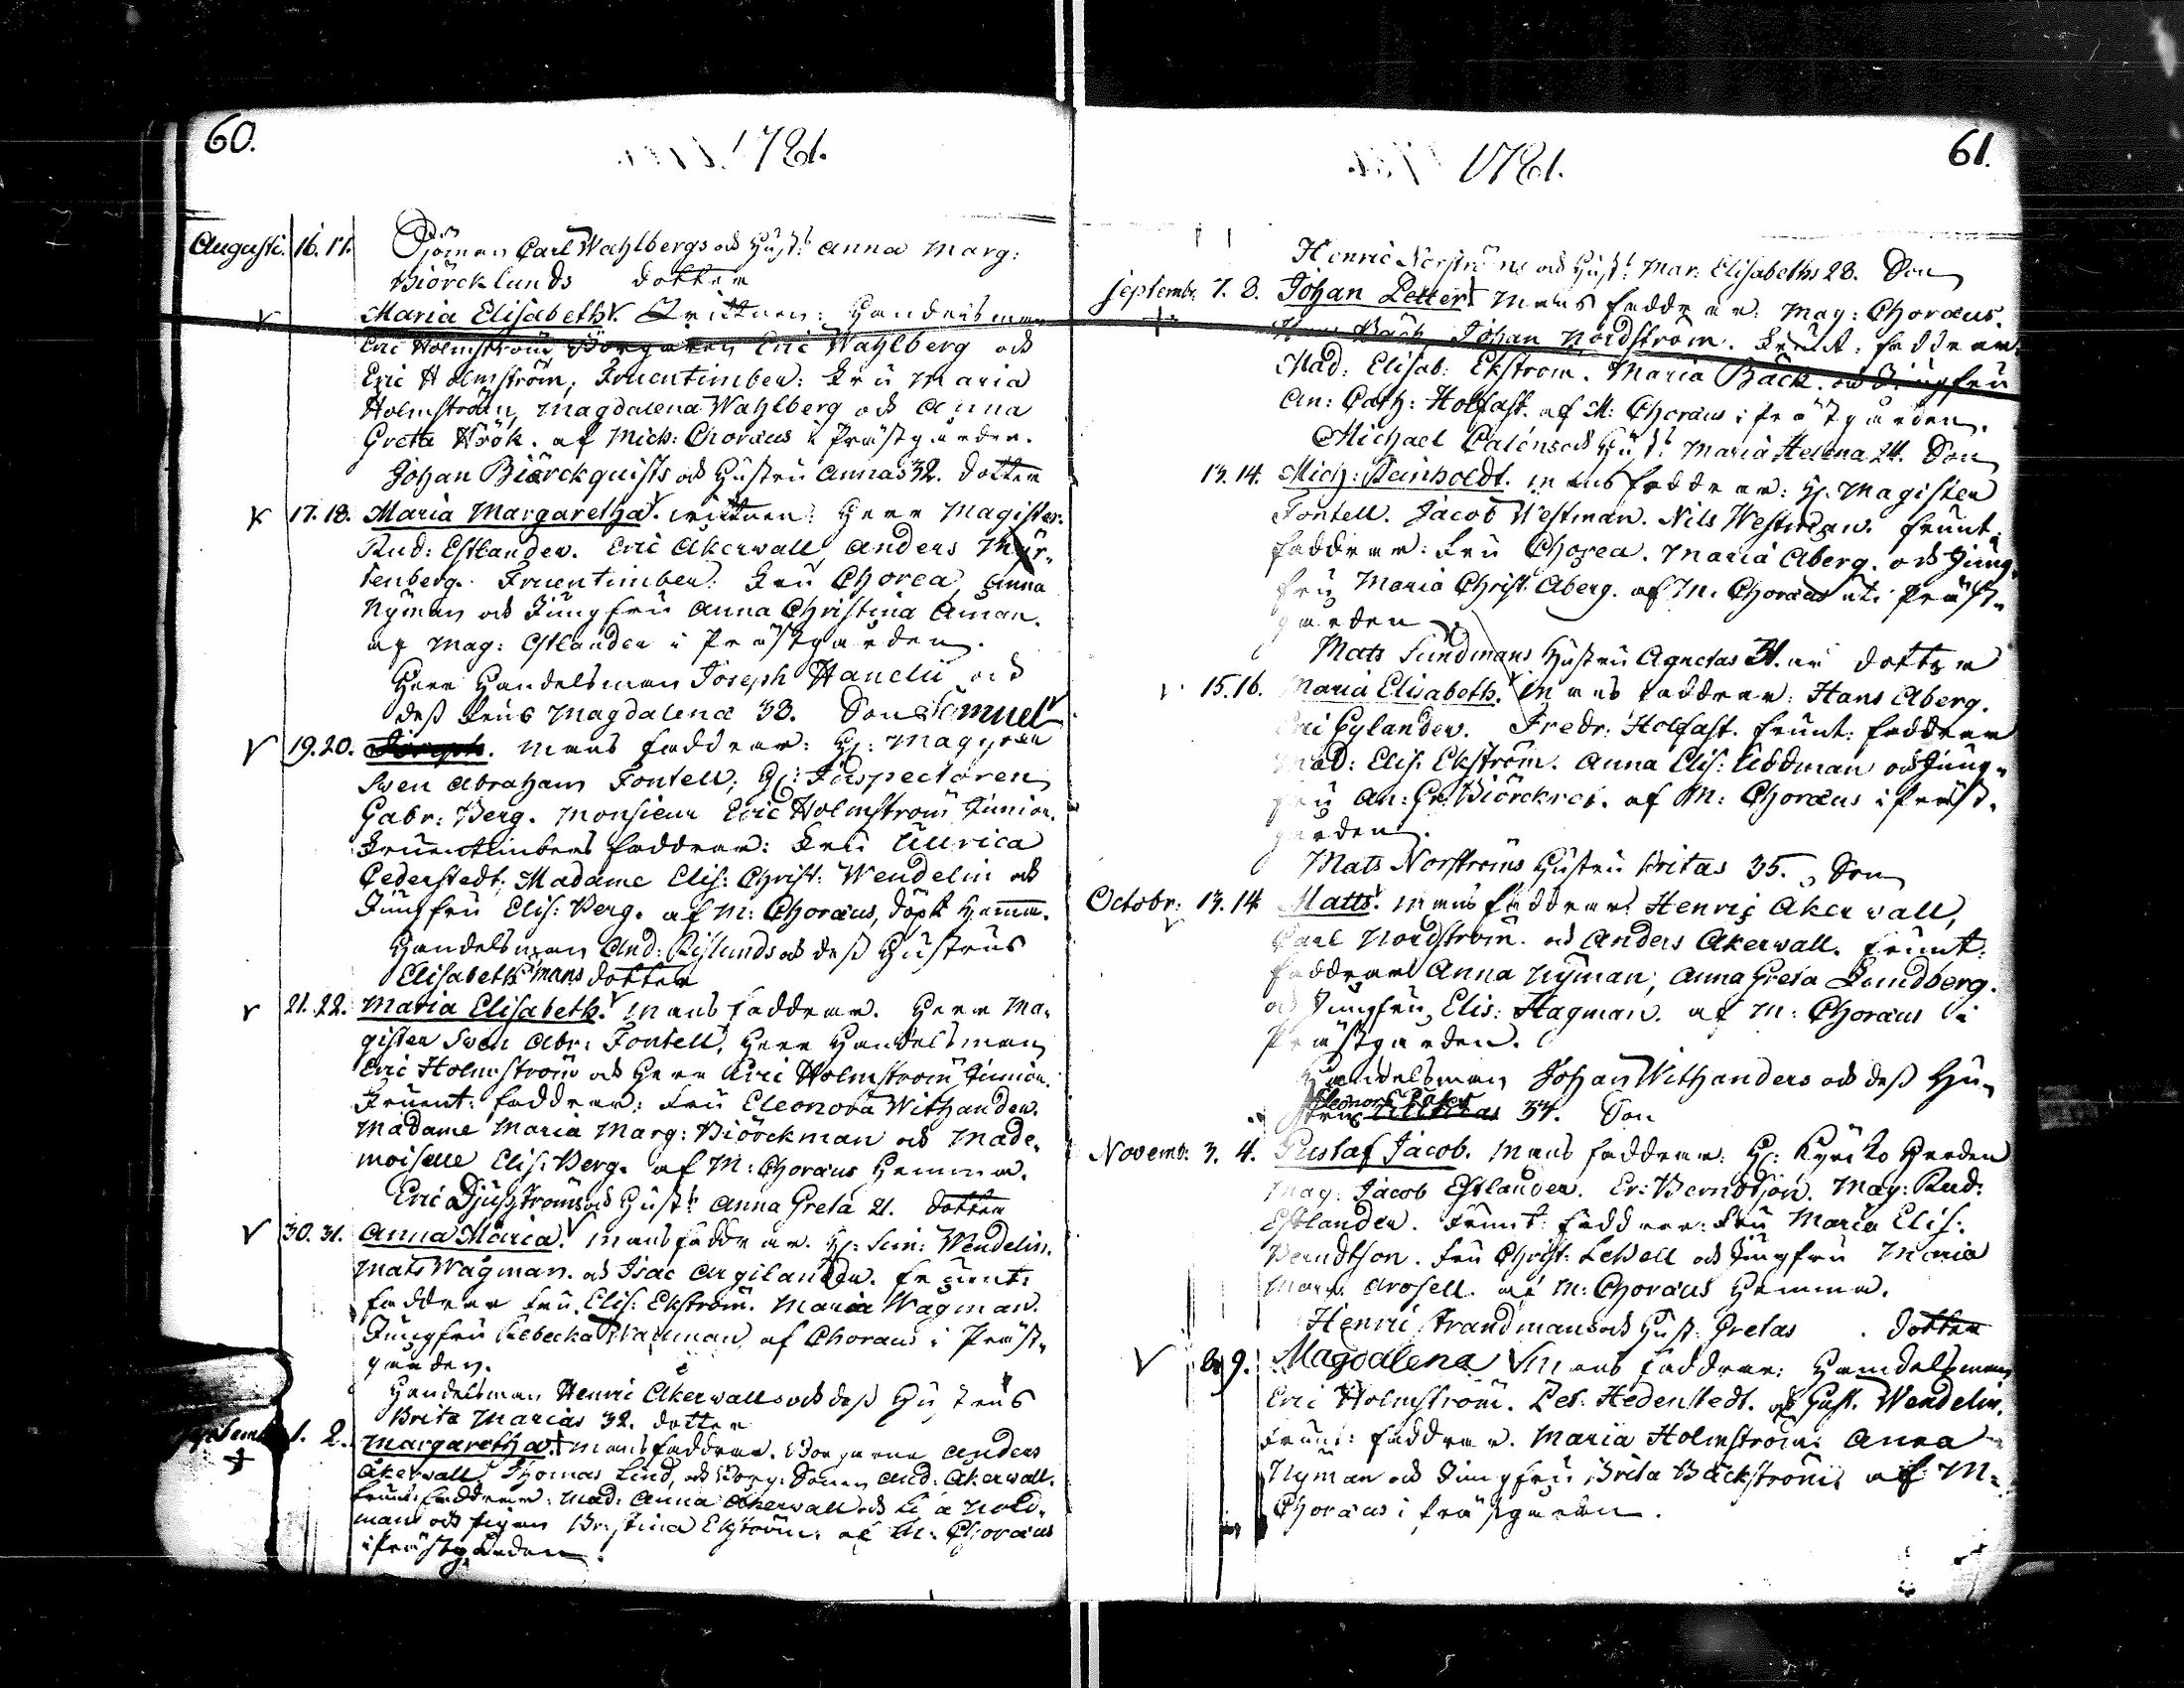 60.
1781.
Augusti. 16. 17. Sjöman Carl Wahlbergs och Hust: Anna Marg:
Biörcklunds dotter
Maria Elisabeth. Wittnen: Handelsman
Eric Holmström Borgaren Eric Wahlberg och
Eric Holmström, Fruentimber: Fru Maria
Holmström, Magdalena Wahlberg och Anna
Greta Höök. af Mich: Choræus i Prästgården.
Johan Biörckquists och Hustru Annas 32. dotter
17. 18. Maria Margaretha. wittnen: Herr Magister.
Rud: Estlander. Eric Åkerwall, Anders
tenberg. Fruentimber: Fru Chorea, Anna
Nyman och Jungfru Anna Christina Åman.
af Mag: Estlander i Prästgården.
Herr Handelsman Joseph Hanelii och
dess Frus Magdalenæ 38. Son Samuel
19. 20. Joseph. Mans faddrar: H: Magistern
Swen Abraham Fontell, H: Inspectoren
Gabr: Berg. Monsieur Eric Holmström Junior.
Fruentimbers faddrar: Fru Ullrica
Cederstedt, Madame Elis: Christ: Wendelin och
Jungfru Elis: Berg. af M: Choræus, döpt hemma.
Handelsman And: Rislunds och dess Hustrus
Elisabeth mans dotter
21. 22. Maria Elisabeth. Mans faddrar. Herr Ma-
gister Swen Abr: Fontell, Herr Handelsman
Eric Holmström och Herr Eric Holmström Junior.
Fruent: faddrar: Fru Eleonora Withander.
Madame Maria Marg: Biörckman och Made-
moiselle Elis: Berg. af M: Choræus hemma.
Eric Djupströms och Hust: Anna Greta 21. dotter
30. 31. Anna Maria. Mans faddrar. H: Sim: Wendelin.
Mats Wagman. och Isac Argilander. fruent:
faddrar Fru Elis: Ekström. Maria Wagman.
Jungfru Rebecka Wagman af Choræus i Präst-
gården.
Handelsman Henric Åkerwalls och dess Hustrus
Brita Marias 32. dotter
Septemb: 1. 2. Margaretha. Mans faddrar. Borgarne Anders
Åkerwall Thomas Lind, och Borg: Sonen And: Åkerwall.
Fruent: faddrar: Mad: Anna Åkerwall och
man och Pigan Kristina Ekström. af M: Choræus
i Prästgården.
61.
1781.
Henric Norströms och Hust: Mar: Elisabeths 28. Son
Septemb: 7. 8. Johan Petter. Mans faddrar: Mag: Choræus.
Bäck, Johan Nordström. Fruent: faddrar
Mad: Elisab: Ekström. Maria Bäck. och Jungfru
An: Cath: Holfast. af M: Choræus i Prästgården.
Michael Caléns och Hust: Maria Helena 24. Son
13. 14. Mich: Reinholdt. Mans faddrar: H. Magister
Fontell. Jacob Westman. Nils Westman. fruent:
faddrar: Fru Chorea. Maria Åberg. och Jung-
fru Maria Christ: Åberg. af M: Choræus uti Präst-
gården.
Mats Sundmans Hustru Agnetas 31. år dotter
15. 16. Maria Elisabeth. Mans faddrar: Hans Åberg.
Eric Cylander. Fredr: Holfast. fruent: faddrar
Mad: Elis: Ekström. Anna Elis: Uddman och Jung-
fru An: Gr: Biörckroi. af M: Choræus i Präst-
gården.
Mats Norströms Hustru Britas 35. Son
Octobr: 13. 14. Matts. Mans faddrar Henric Åkerwall,
Carl Nordström. och Anders Åkerwall. fruent:
faddrar Anna Nyman, Anna Greta Lundberg.
och Jungfru Elis: Hagman. af M: Choræus i
Prästgården.
Handelsman Johan Withanders och dess Hu-
strus Eleonora 34. Son
Novemb: 3. 4. Gustaf Jacob. Mans faddrar: H: Kyrkoherden
Mag: Jacob Estlander. Er: Berndtson. Mag: Rud:
Estlander. Fruent: faddrar: Fru Maria Elis:
Berndtson. Fru Christ: Lewell och Jungfru Maria
Mar: Arosell. af M: Choræus hemma.
Henric Strandmans och Hust: Gretas dotter
8. 9. Magdalena Mans faddrar: Handelsman
Eric Holmström. Pet: Hedenstedt. och Gust. Wendelin.
Fruent: faddrar. Maria Holmström Anna
Nyman och Jungfru Brita Bäckström af M:
Choræus i Prästgården.